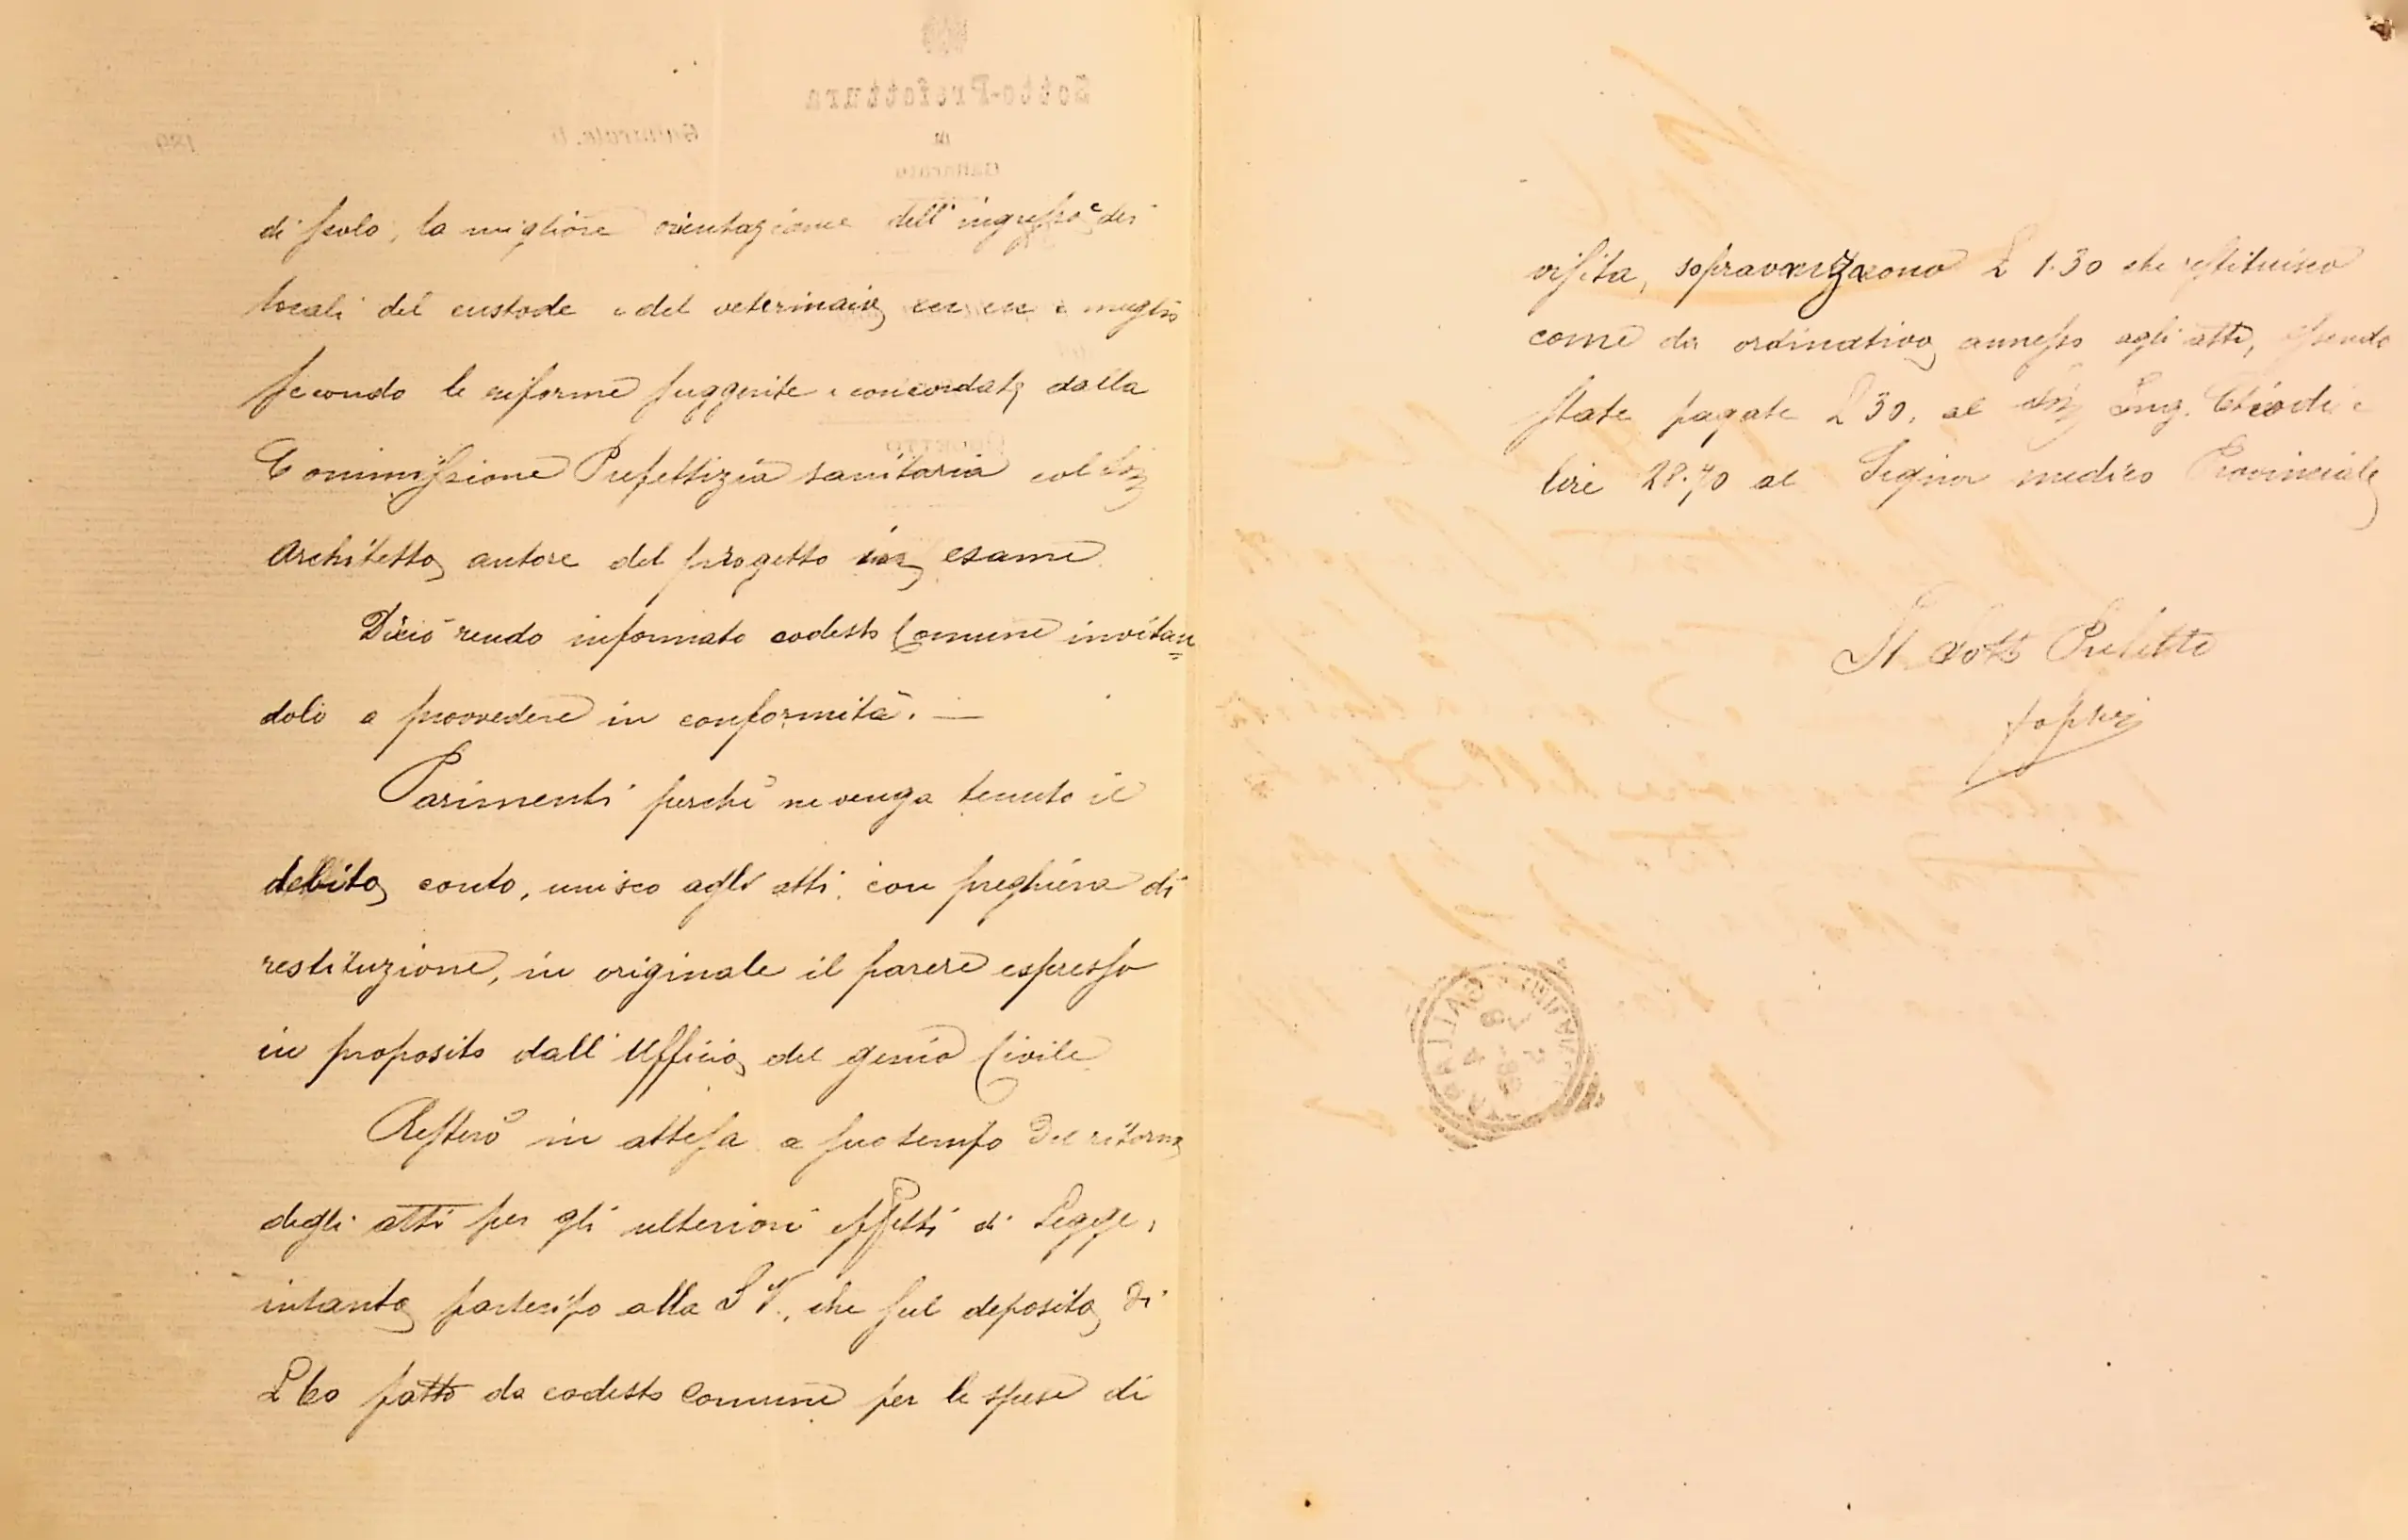 di suolo, la migliore orientazione dell'ingresso e dei
locali del custode e del veterinario, e meglio
secondo le riforme suggerite e concordate dalla
Commissione Prefettizia sanitaria col Sig
Architetto, autore del progetto in esame
Di ciò rendo informato codesto Comune invitan=
dolo a provvedere in conformità. —
Parimenti perchè ne venga tenuto il
debito conto, unisco agli atti, con preghiera di
restituzione, in originale il parere espresso
in proposito dall'Ufficio del genio Civile
Resterò in attesa a suo tempo del ritorno
degli atti per gli ulteriori effetti di Legge,
intanto partecipo alla S V. che sul deposito di
L 60 fatto da codesto Comune per le spese di
visita, sopravanzarono L 1.30 che restituisco
come da ordinativo annesso agli atti, essendo
state pagate L 30, al Sig Ing. e
lire 28.70 al Signor medico Provinciale
Il Sotto Prefetto
Sotto-Prefettura
di
Gallarate
Gallarate, li
189
OGGETTO
GALLARATE